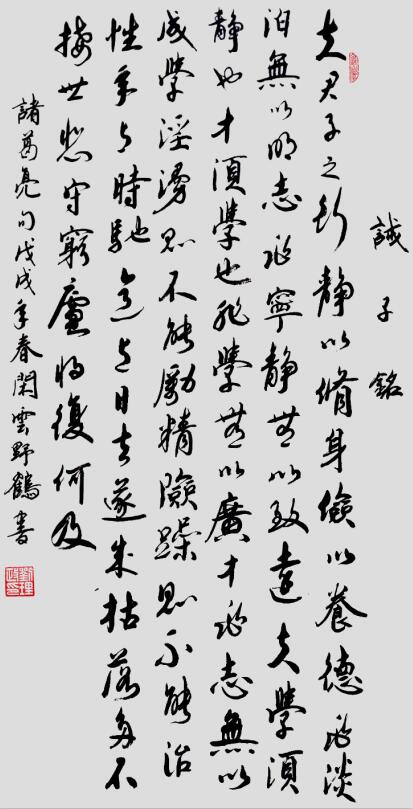 誡子銘
夫君子之行靜以脩身儉以養德非淡
泊無以明志非寧靜無以致遠夫學須
靜也才須學也非學無以廣才非志無以
成學淫漫則不能勵精險躁則不能治
性年与時馳意与日去遂成枯落多不
接世悲守窮廬將復何及
諸葛亮句戊戌年春閑雲野鶴書